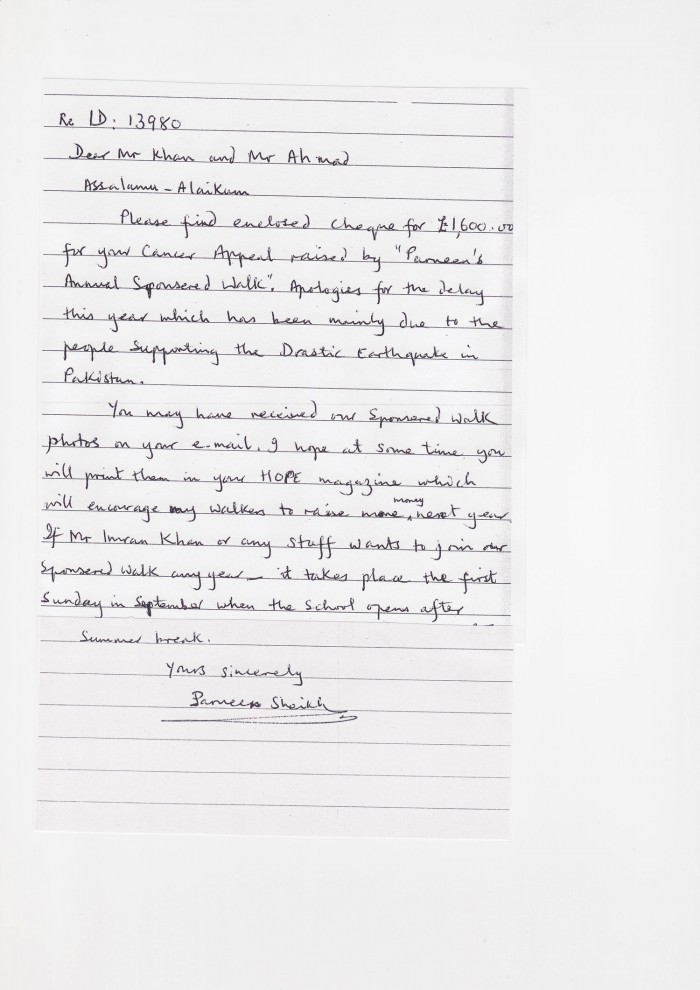 Re ID: 13980
Dear Mr Khan and Mr Ahmad
Assalamu-Alaikum
Please find enclosed cheque for £1,600.00
for your Cancer Appeal raised by "Parveen's
Annual Sponsered Walk". Apologies for the delay
this year which has been mainly due to the
people supporting the Drastic Earthquake in
Pakistan.
You may have received our Sponsered Walk
photos on your e-mail. I hope at some time you
will print them in your HOPE magazine which
will encourage my walkers to raise more money next year.
If Mr Imran Khan or any staff wants to join our
Sponsered Walk any year - it takes place the first
Sunday in September when the School opens after
Summer break.
Yours sincerely
Parveen Sheikh